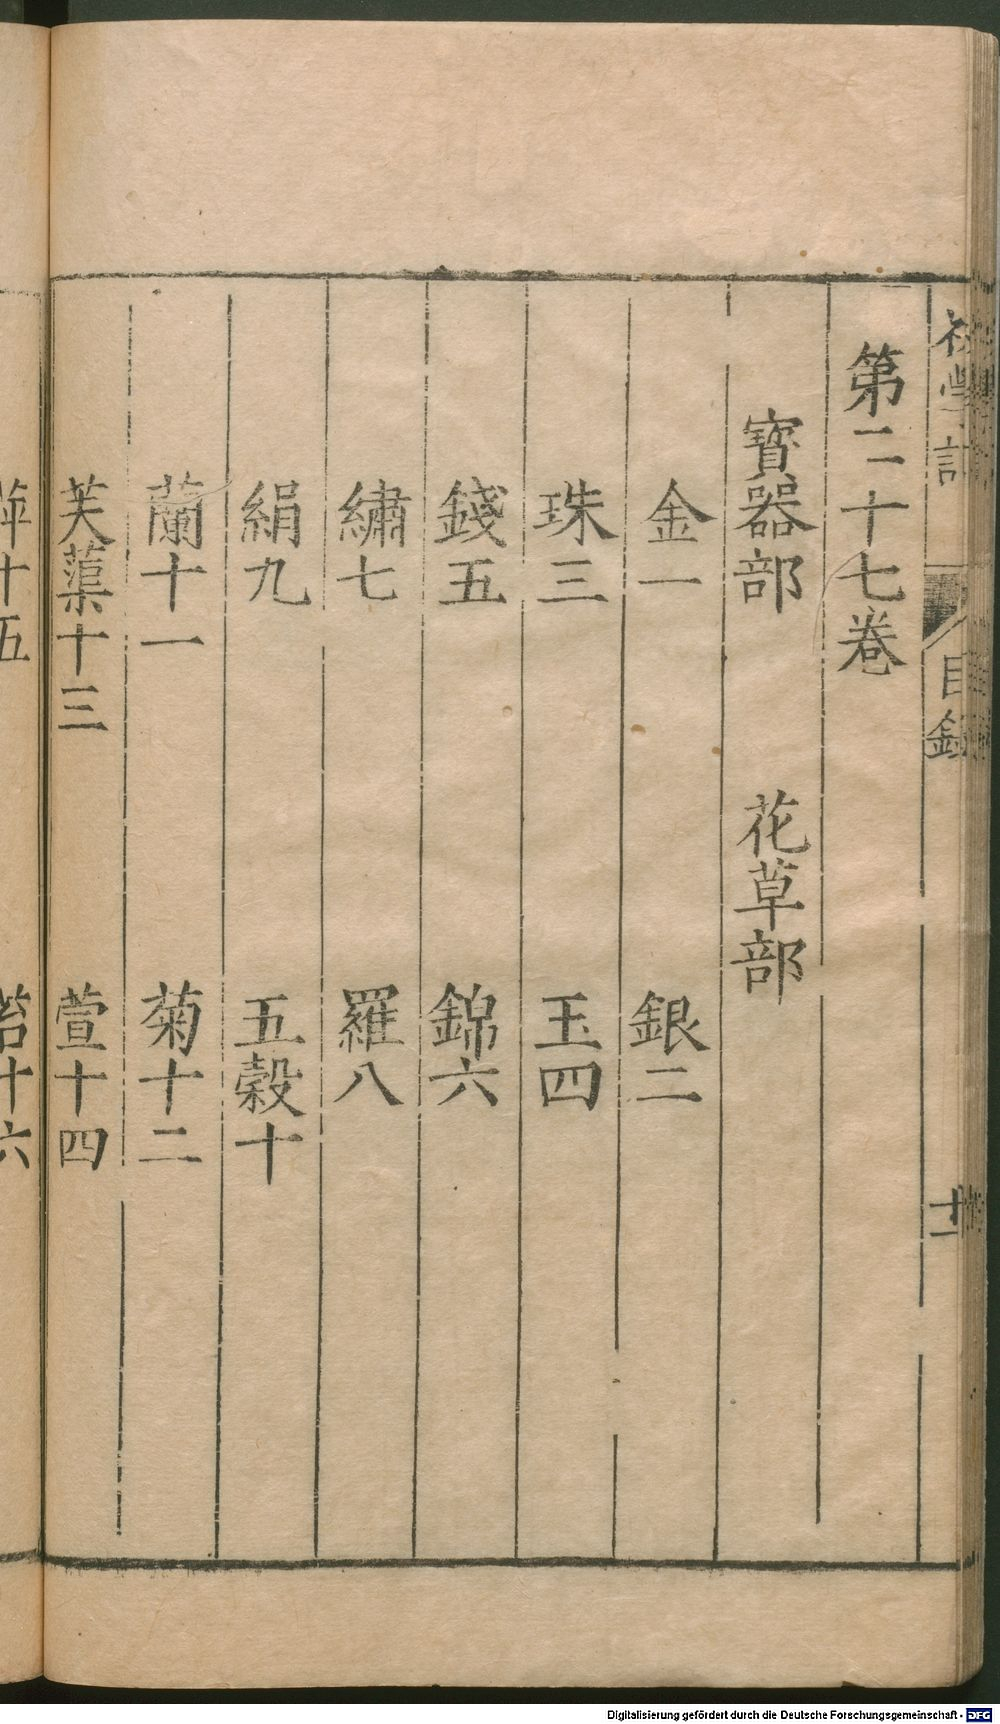 初學記
目錄
十二
第二十七卷
寳器部 花草部
金一 銀二
珠三 玉四
錢五 錦六
繡七 羅八
絹九 五穀十
蘭十一 菊十二
芙蕖十三 萱十四
萍十五 苔十六
Digitalisierung gefördert durch die Deutsche Forschungsgemeinschaft - DFG